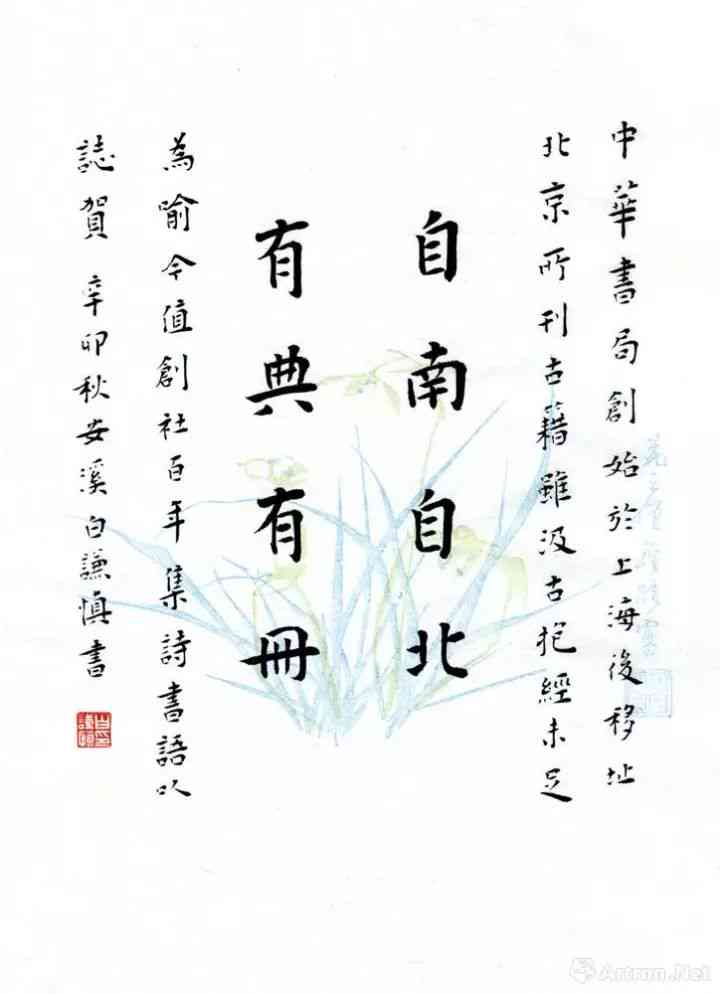 中華書局創始於上海後移址
北京所刊古籍雖汲古抱經未足
自南自北
有典有冊
為喻今值創社百年集詩書語以
誌賀 辛卯秋安溪白謙慎書
白謙慎印
Artron.Net